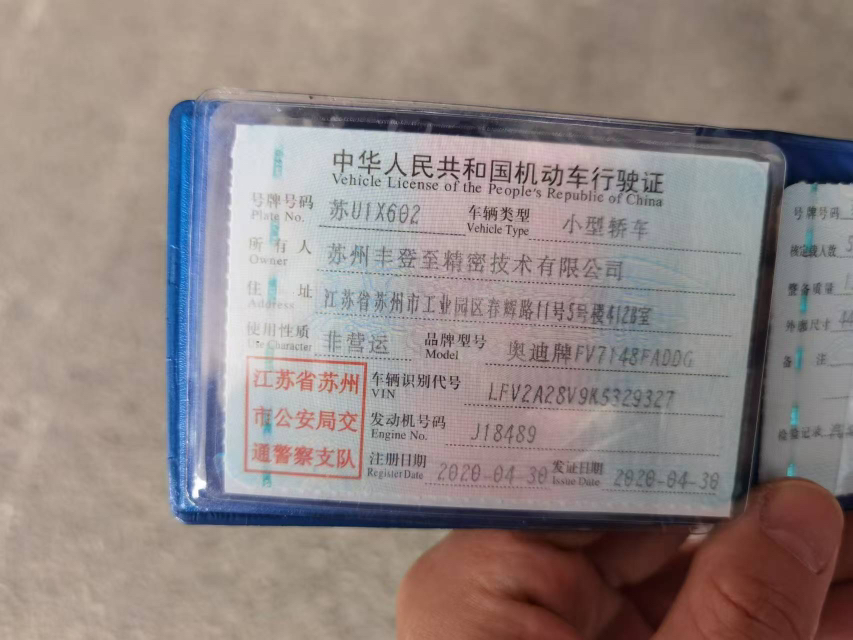 中华人民共和国机动车行驶证
Vehicle License of the People's Republic of China
号牌号码 苏U1X602 车辆类型 小型轿车
Plate No. Vehicle Type
所有人 苏州丰登至精密技术有限公司
Owner
住址 江苏省苏州市工业园区春辉路11号5号楼412B室
Address
使用性质 非营运 品牌型号 奥迪牌FV7148FADDG
Use Character Model
江苏省苏州
市公安局交
通警察支队
车辆识别代号 LFV2A28V9K5329327
VIN
发动机号码 J18489
Engine No.
注册日期 2020-04-30 发证日期 2020-04-30
Register Date Issue Date
号牌号码
核定载人数 5
整备质量
外廓尺寸 44
备注
检验记录